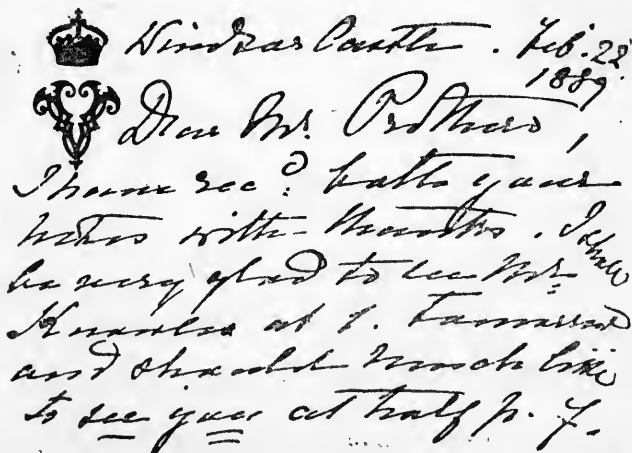 Windsor Castle. Feb. 22
1889.
Dear Mr. Prothero,
I have recd. both your
notes with thanks. I shall
be very glad to see Mr.
Knowles at 1. tomorrow
and should much like
to see you at half p. 7.